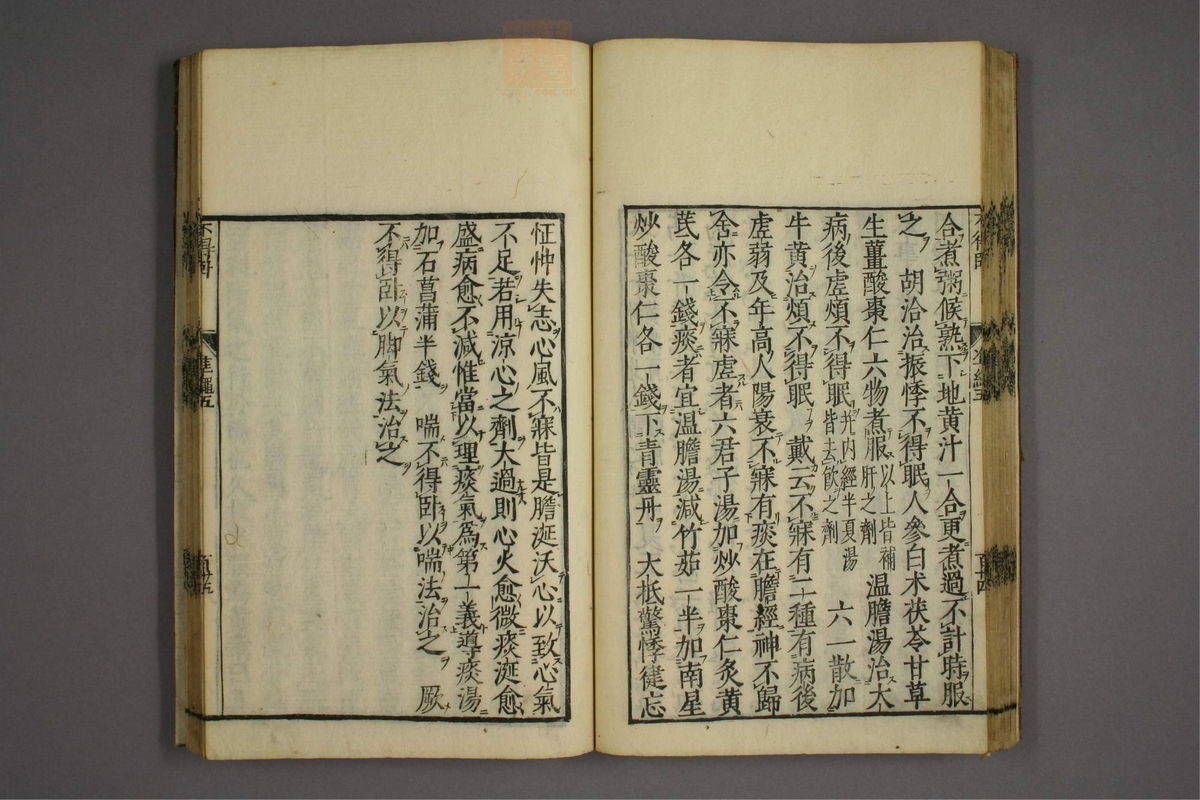 合煮粥候熟下地黄汁一合更煮過不計時服
之　胡洽治振悸不得眠人參白朮茯苓甘草
生薑酸棗仁六物煮服以上皆補肝之劑　温膽湯治大
病後虚煩不得眠此内經半夏湯皆去飲之劑　六一散加
牛黄治煩不得眠　戴云不寐有二種有病後
虚弱及年高人陽衰不寐有痰在膽經神不歸
舍亦令不寐虚者六君子湯加炒酸棗仁炙黄
芪各一錢痰者宜温膽湯減竹茹一半加南星
炒酸棗仁各一錢下青靈丹　大抵驚悸健忘
怔忡失志心風不寐皆是膽涎沃心以致心氣
不足若用凉心之劑太過則心火愈微痰涎愈
盛病愈不減惟當以理痰氣爲第一義導痰湯
加石菖蒲半錢　喘不得卧以喘法治之　厥
不得卧以脚氣法治之
不得卧
準繩五